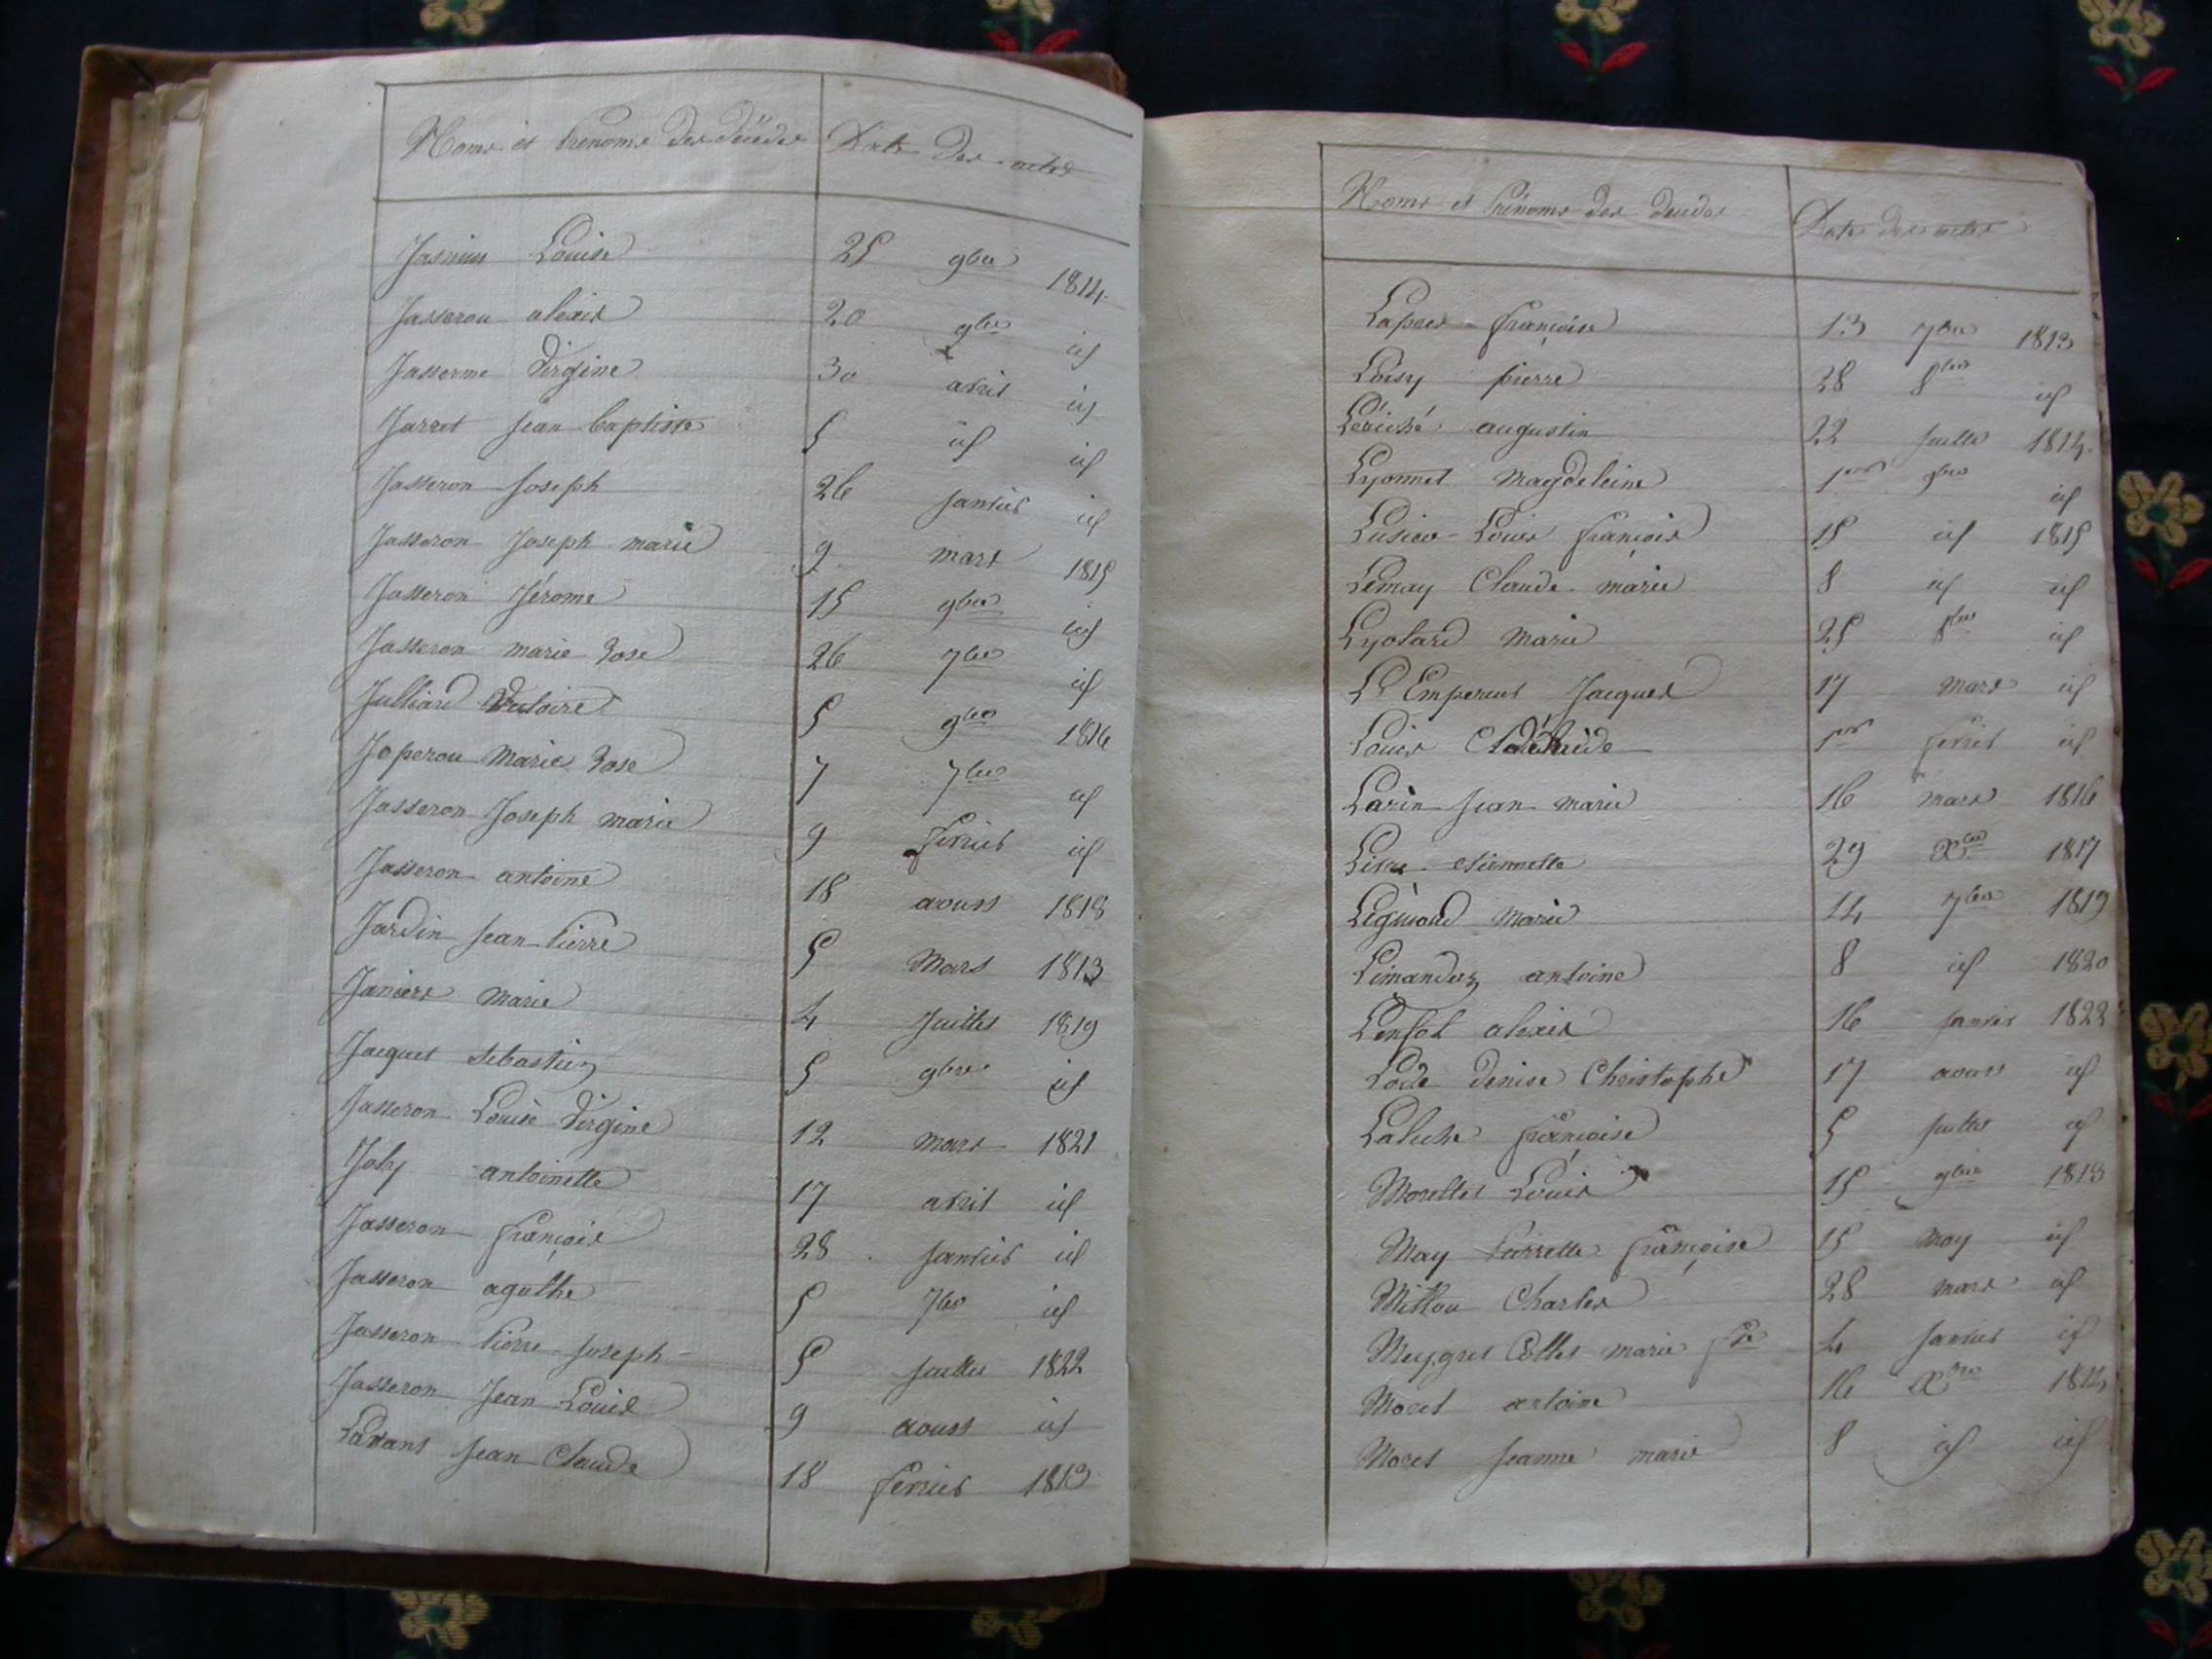 Noms et Prénoms des décédés Date des actes
Louise 25 9bre 1814
Jasseron alexis 20 9bre id
Jasserme Virgine 30 avril id
Jarret jean baptiste 5 id id
Jasseron joseph 26 janvier id
Jasseron Joseph marie 9 mars 1815
Jasseron Jérome 15 9bre id
Jasseron marie Rose 26 7bre id
Julliard 5 9bre 1816
Joperou Marie Rose 7 7bre id
Jasseron Joseph marie 9 fevrier id
Jasseron antoine 18 aoust 1818
Jardin jean Pierre 5 Mars 1813
Janiere Marie 4 Juillet 1819
Jacquet Sebastien 5 9bre id
Jasseron Louise Virgine 12 mars 1821
Joly antoinette 17 avril id
Jasseron françois 28 janvier id
Jasseron agathe 5 7bre id
Jasseron Pierre joseph 5 juillet 1822
Jasseron Jean Louis 9 aoust id
Lavant jean Claude 18 fevrier 1813
Noms et Prénoms des décédés Date des actes
françoise 13 7bre 1813
Loisy pierre 28 8bre id
Leriché augustin 22 juillet 1814
Lyonnet Magdeleine 1er 9bre id
Louis françois 15 id 1815
Lemay Claude marie 8 id id
Lyotard Marie 25 8bre id
L'Empereur Jacques 17 Mars id
Louise 1er fevrier id
Larin jean marie 16 mars 1816
etiennette 29 Xbre 1817
Marie 14 7bre 1819
Limandas antoine 8 id 1820
alexis 16 janvier 1822
Lode denise Christophe 17 aoust id
françoise 5 juillet id
Morellet Louis 15 9bre 1813
May Pierrette françoise 15 May id
Mittou Charles 28 mars id
Meygret marie 4 janvier id
Moret antoine 16 Xbre 1814
Moret jeanne marie 8 id id